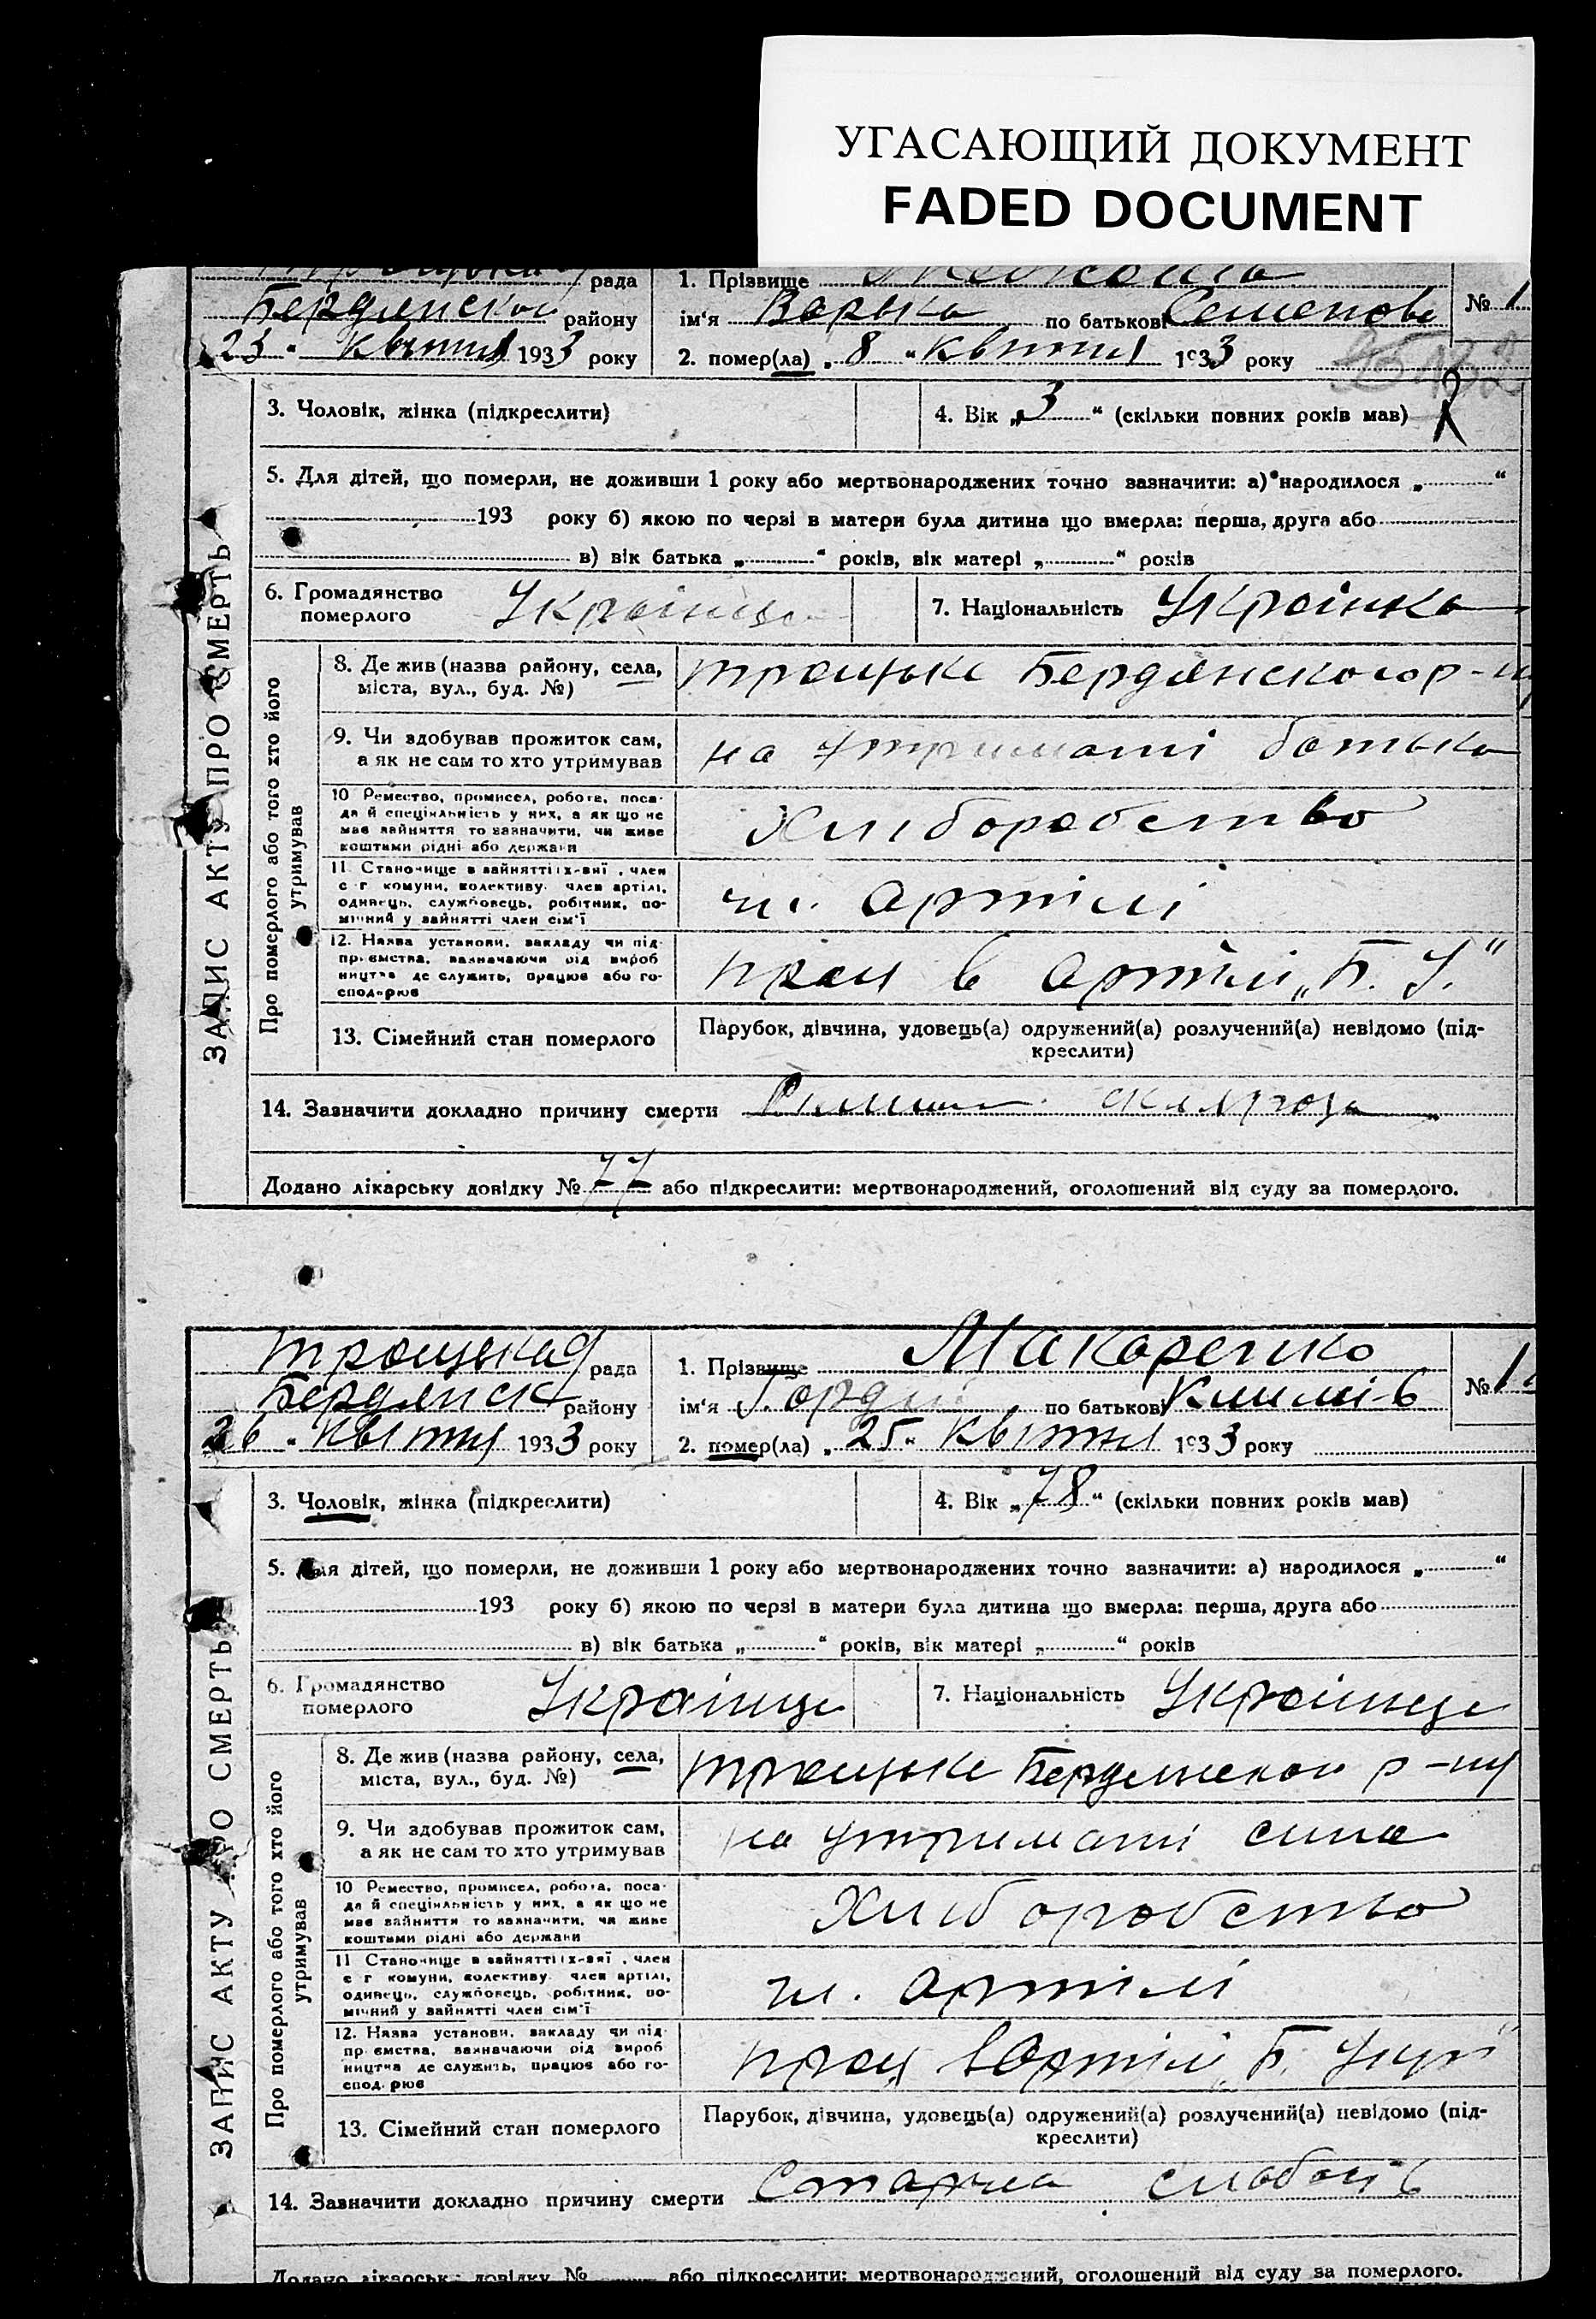 УГАСАЮЩИЙ ДОКУМЕНТ
FADED DOCUMENT
рада
Бердянской району
23 " квітня 1933 року
1. Прізвище
ім'я Варька по батькові Семенова
2. помер(ла) „ 8 " квітня 1933 року
№ 1
3. Чоловік, жінка (підкреслити)
4. Вік „ 3 " (скільки повних років мав)
5. Для дітей, що померли, не доживши 1 року або мертвонароджених точно зазначити: а) народилося „ "
193 року б) якою по черзі в матери була дитина що вмерла: перша, друга або
в) вік батька „ " років, вік матері „ " років
6. Громадянство
померлого
Українце
7. Національність Українка
ЗАПИС АКТУ ПРО СМЕРТЬ
Про померлого або того хто його
утримував
8. Де жив (назва району, села,
міста, вул., буд. №)
троицьке Бердянского р-ну
9. Чи здобував прожиток сам,
а як не сам то хто утримував
на утримані батька
10 Ремество, промисел, робота, поса-
да й спеціяльність у них, а як що не
має зайняття то зазначити, чи живе
коштами рідні або держави
Хлиборобство
11. Становище в зайнятті (х-вні , член
с г комуни, колективу. член артілі,
одинець, службовець, робітник, по-
мічний у зайнятті член сім'ї
чл. артілі
12. Назва установи, закладу чи під-
приємства, зазначаючи рід вироб
ництва де служить, працює або го-
сподарює
прац в артілі „Б. У."
13. Сімейний стан померлого
Парубок, дівчина, удовець(а) одружений(а) розлучений(а) невідомо (під-
креслити)
14. Зазначити докладно причину смерти
Додано лікарську довідку № 77 або підкреслити: мертвонароджений, оголошений від суду за померлого.
троицька рада
Бердянск району
26 " квітня 1933 року
1. Прізвище Макаренко
ім'я Гордій по батькові Климів
2. помер(ла) „ 25 " квітня 1933 року
№ 1
3. Чоловік, жінка (підкреслити)
4. Вік „ 78 " (скільки повних років мав)
5. Для дітей, що померли, не доживши 1 року або мертвонароджених точно зазначити: а) народилося „ "
193 року б) якою по черзі в матери була дитина що вмерла: перша, друга або
в) вік батька „ " років, вік матері „ " років
6. Громадянство
померлого
Українце
7. Національність Українце
ЗАПИС АКТУ ПРО СМЕРТЬ
Про померлого або того хто його
утримував
8. Де жив (назва району, села,
міста, вул., буд. №)
троицьке Бердянской р-ну
9. Чи здобував прожиток сам,
а як не сам то хто утримував
на утримані сина
10 Ремество, промисел, робота, поса-
да й спеціяльність у них, а як що не
має зайняття то зазначити, чи живе
коштами рідні або держави
Хлиборобство
11 Становище в зайнятті (х-вні , член
с г комуни, колективу. член артілі,
одинець, службовець, робітник, по-
мічний у зайнятті член сім'ї
чл. артілі
12. Назва установи, закладу чи під-
приємства, зазначаючи рід вироб
ництва де служить, працює або го-
сподарює
прац в Артілі „Б.
13. Сімейний стан померлого
Парубок, дівчина, удовець(а) одружений(а) розлучений(а) невідомо (під-
креслити)
14. Зазначити докладно причину смерти Старча слабость
Додано лікарську довідку № або підкреслити: мертвонароджений, оголошений від суду за померлого.